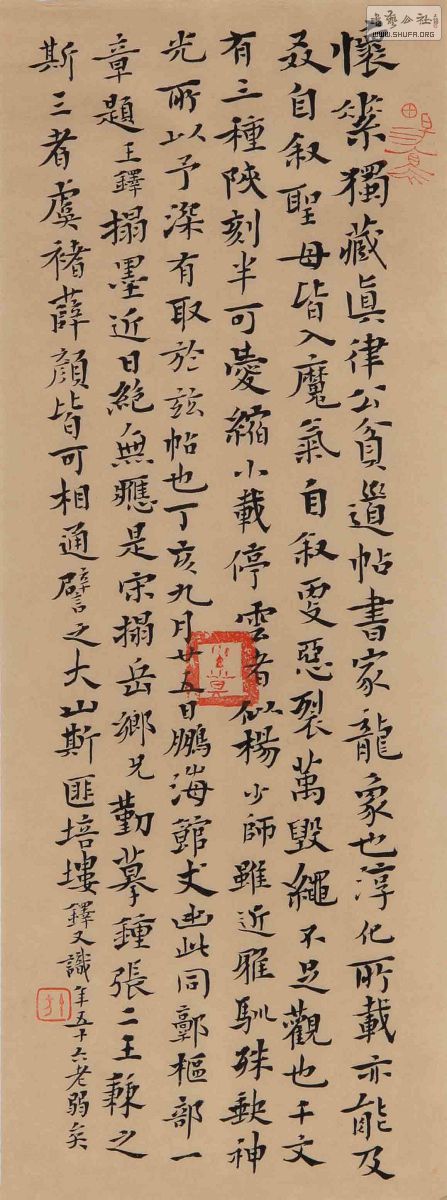 懷素獨藏眞律公貧道帖書家龍象也淳化所載亦能及
叒自叙聖母皆入魔氣自叙更惡裂萬毀繩不足觀也千文
有三種陝刻半可愛縮小載停雲者似楊少師雖近雅馴殊軼神
光所以予深有取於玆帖也丁亥九月廿五日鵬海館丈出此同鄴樞部一
章題王鐸搨墨近日絕無應是宋搨岳鄉兄勤摹鍾張二王兼之
斯三者虞褚薛顏皆可相通譬之大山斯匪培塿鐸又識年五十六老弱矣
藝公社
WWW.SHUFR.ORG